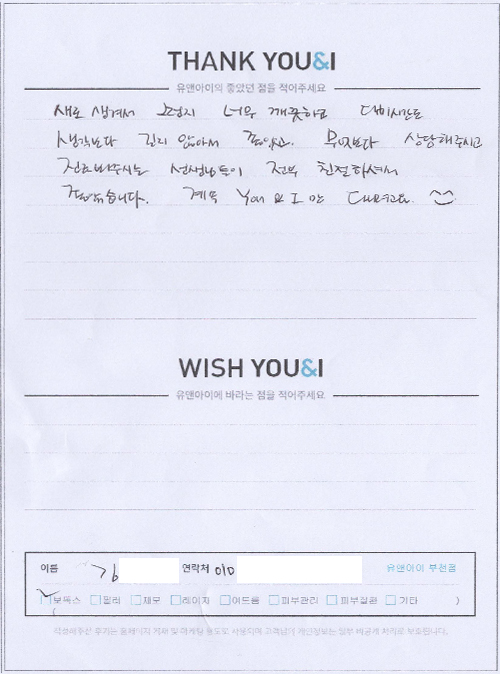 THANK YOU&I
유앤아이의 좋았던 점을 적어주세요
새로 생겨서 그런지 너무 깨끗하고 대기시간도
생각보다 길지 않아서 좋았고. 무엇보다 상담해주시고
진료봐주시는 선생님들이 전부 친절하셔서
좋았습니다. 계속 You & I 만 다니려고요.
WISH YOU&I
유앤아이에 바라는 점을 적어주세요
이름 김 연락처 010 유앤아이 부천점
보톡스 필러 제모 레이저 여드름 피부관리 피부질환 기타 )
작성해주신 후기는 홈페이지 게재 및 마케팅 용도로 사용되며 고객님의 개인정보는 일부 비공개 처리로 보호됩니다.